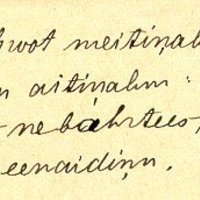 kwot meitiņah
aitiņahm:
nebahrtees,
eenaidiņu.